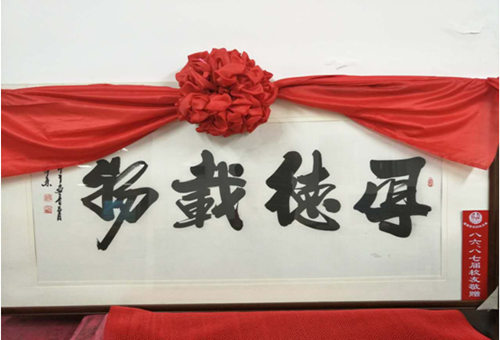 厚德载物
八六八七届校友敬赠